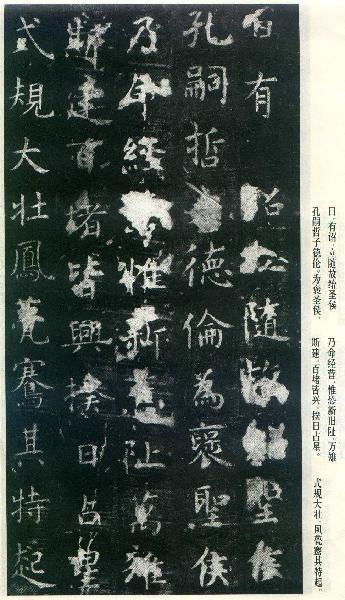 日有詔立隨故聖侯
孔嗣哲德倫為褒聖侯
乃命經惟新址萬雉
斯建百堵皆興揆日占星
式規大壯鳳甍騫其特起
日、有诏：立随故绍圣侯
孔嗣哲子德伦。为褒圣侯、
乃命经营、惟新旧址、万雉
斯建、百堵皆兴、揆日占星。
式规大壮、凤甍骞其特起、